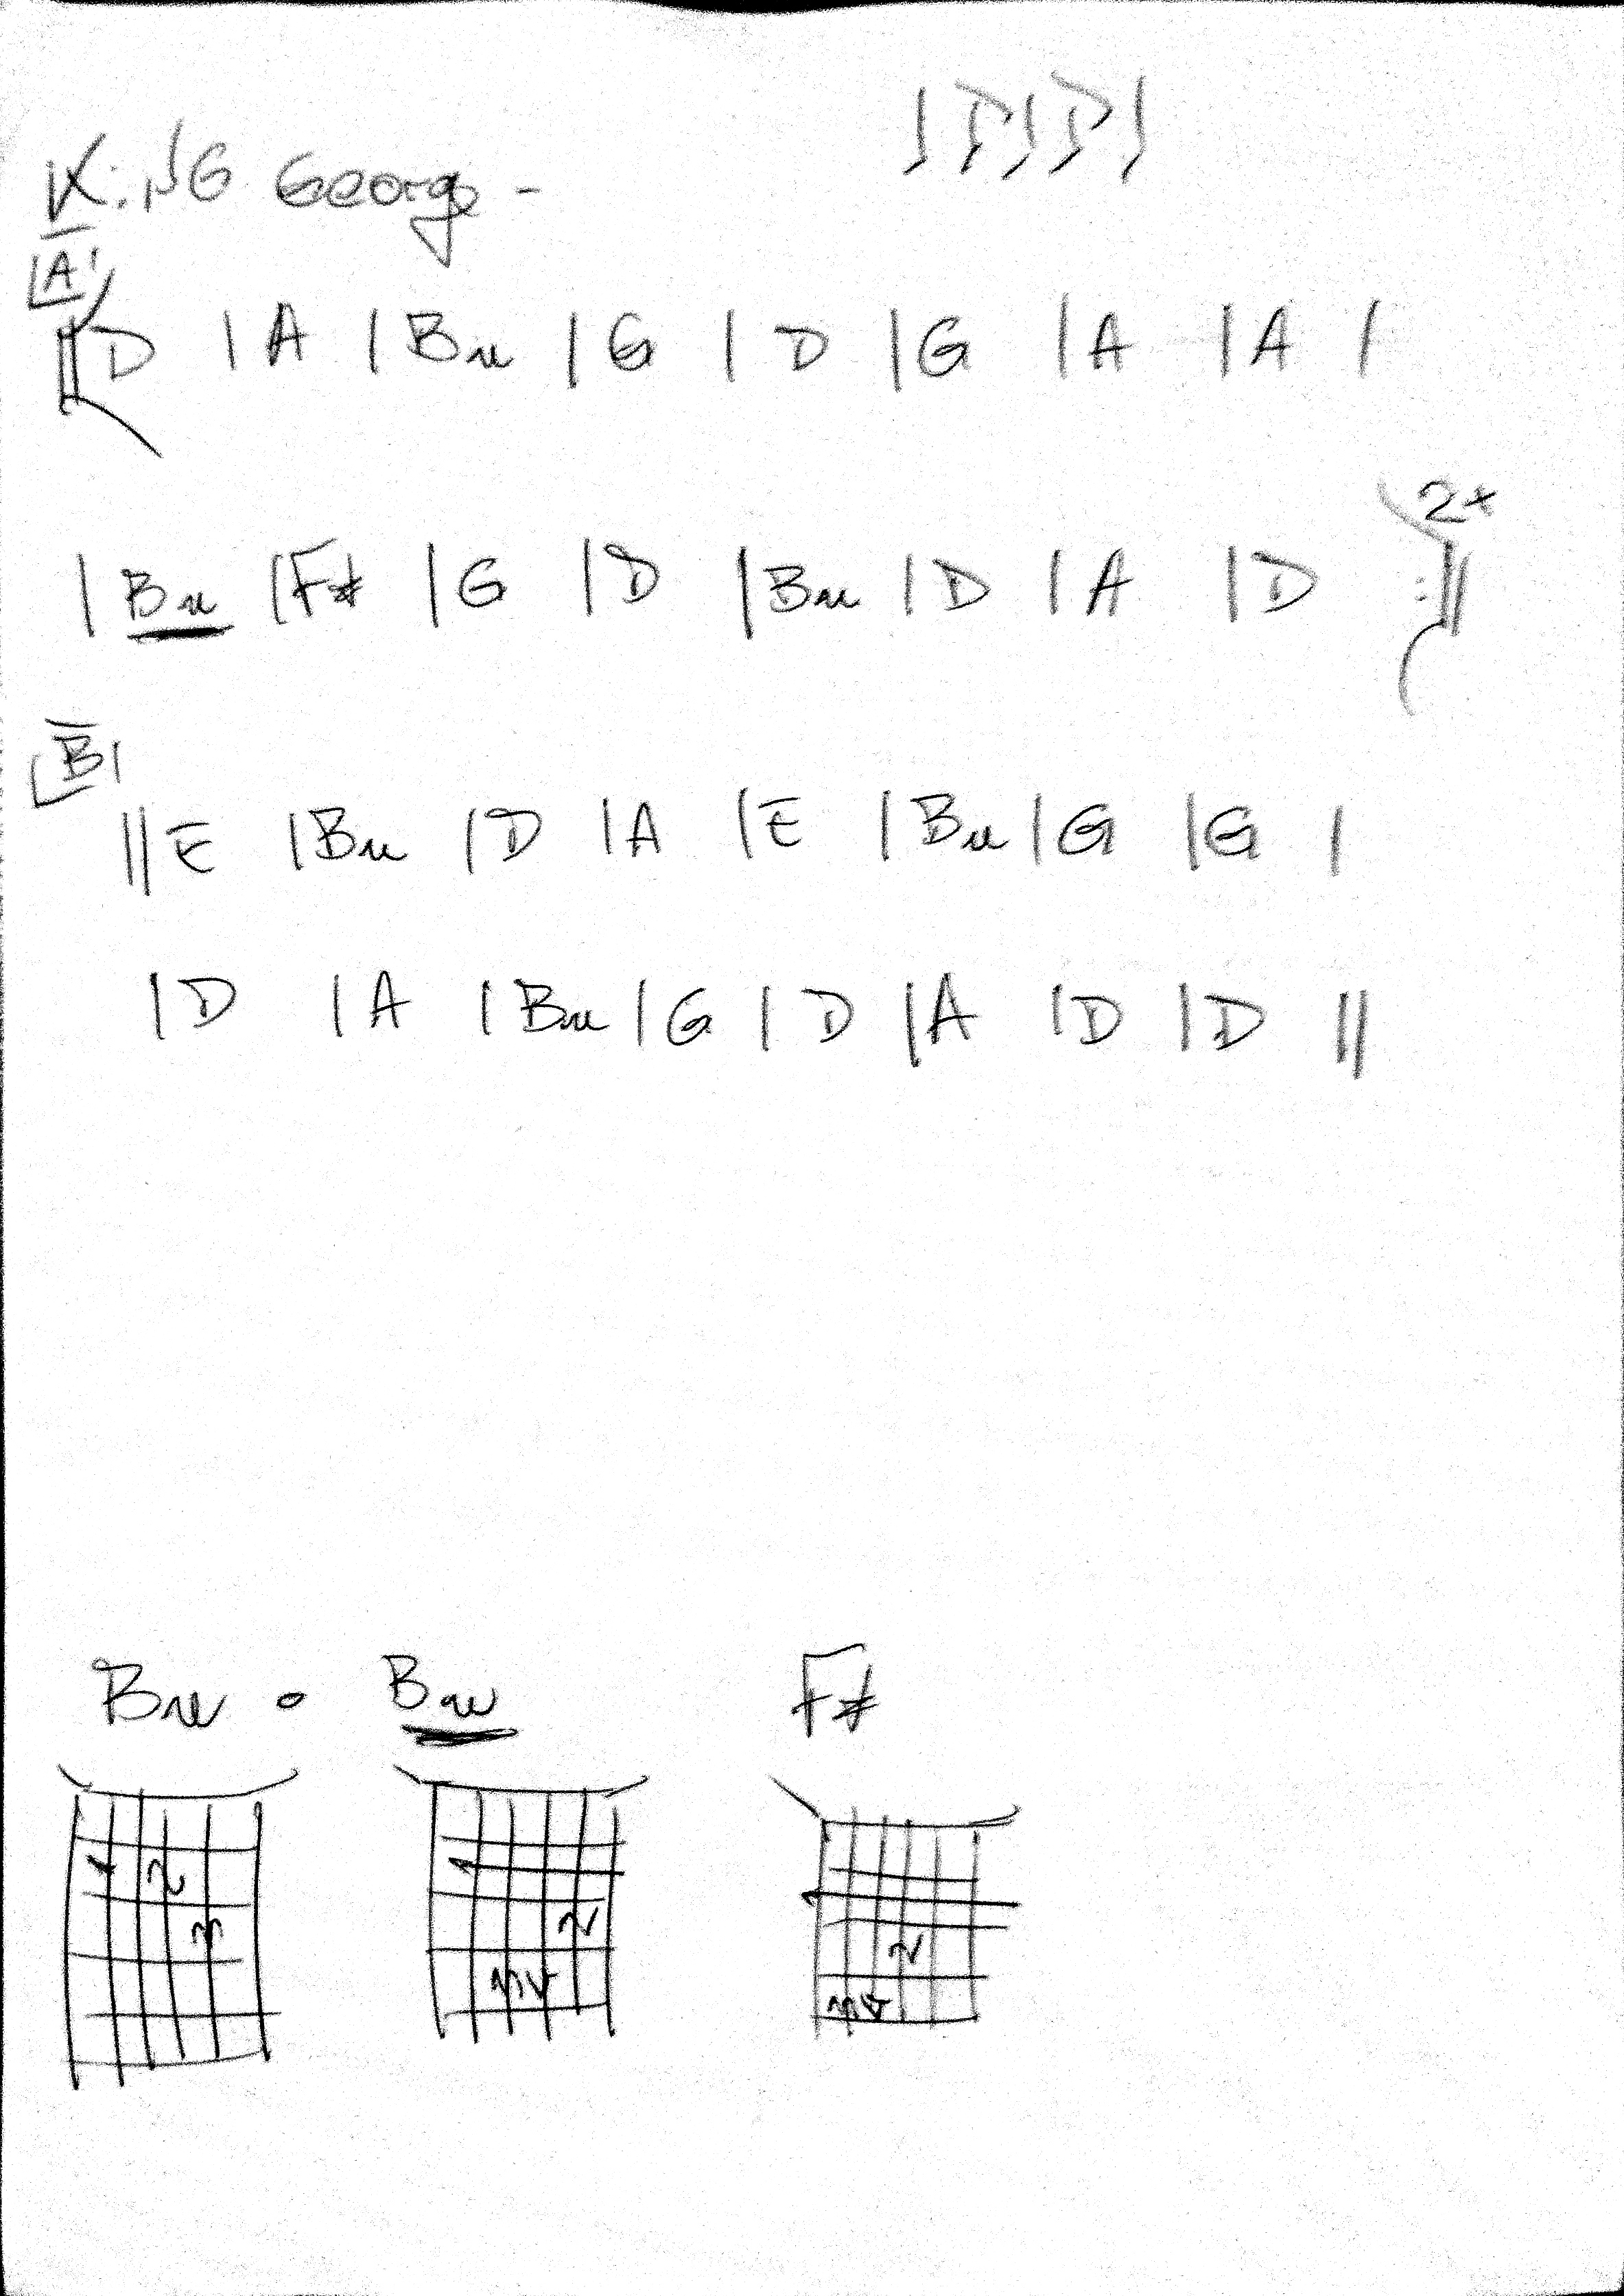 | D | D |
KiNG George -
A
|| D | A | Bm | G | D | G | A | A |
2x
| Bm | F# | G | D | Bm | D | A | D :||
B
|| E | Bm | D | A | E | Bm | G | G |
| D | A | Bm | G | D | A | D | D ||
Bm o Bm F#
1 2 3
1 2 3 4
2 3 4